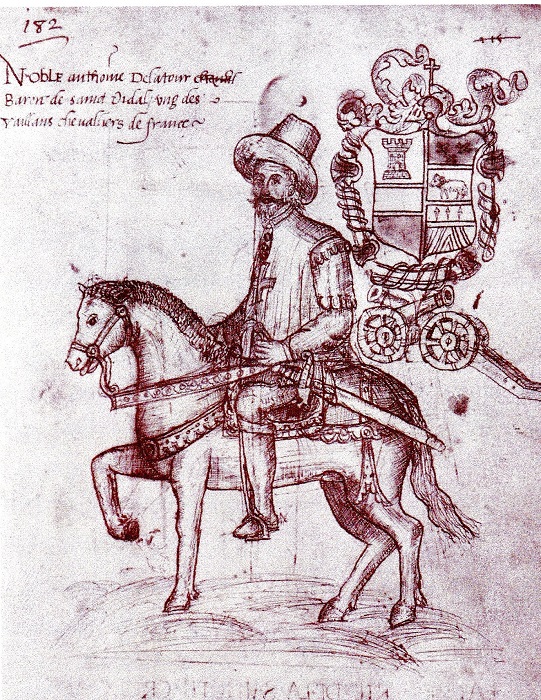 182
NOBLE anthoine Delatour
Baron de sainct Vidal vng des
vaillans chevalliers de france